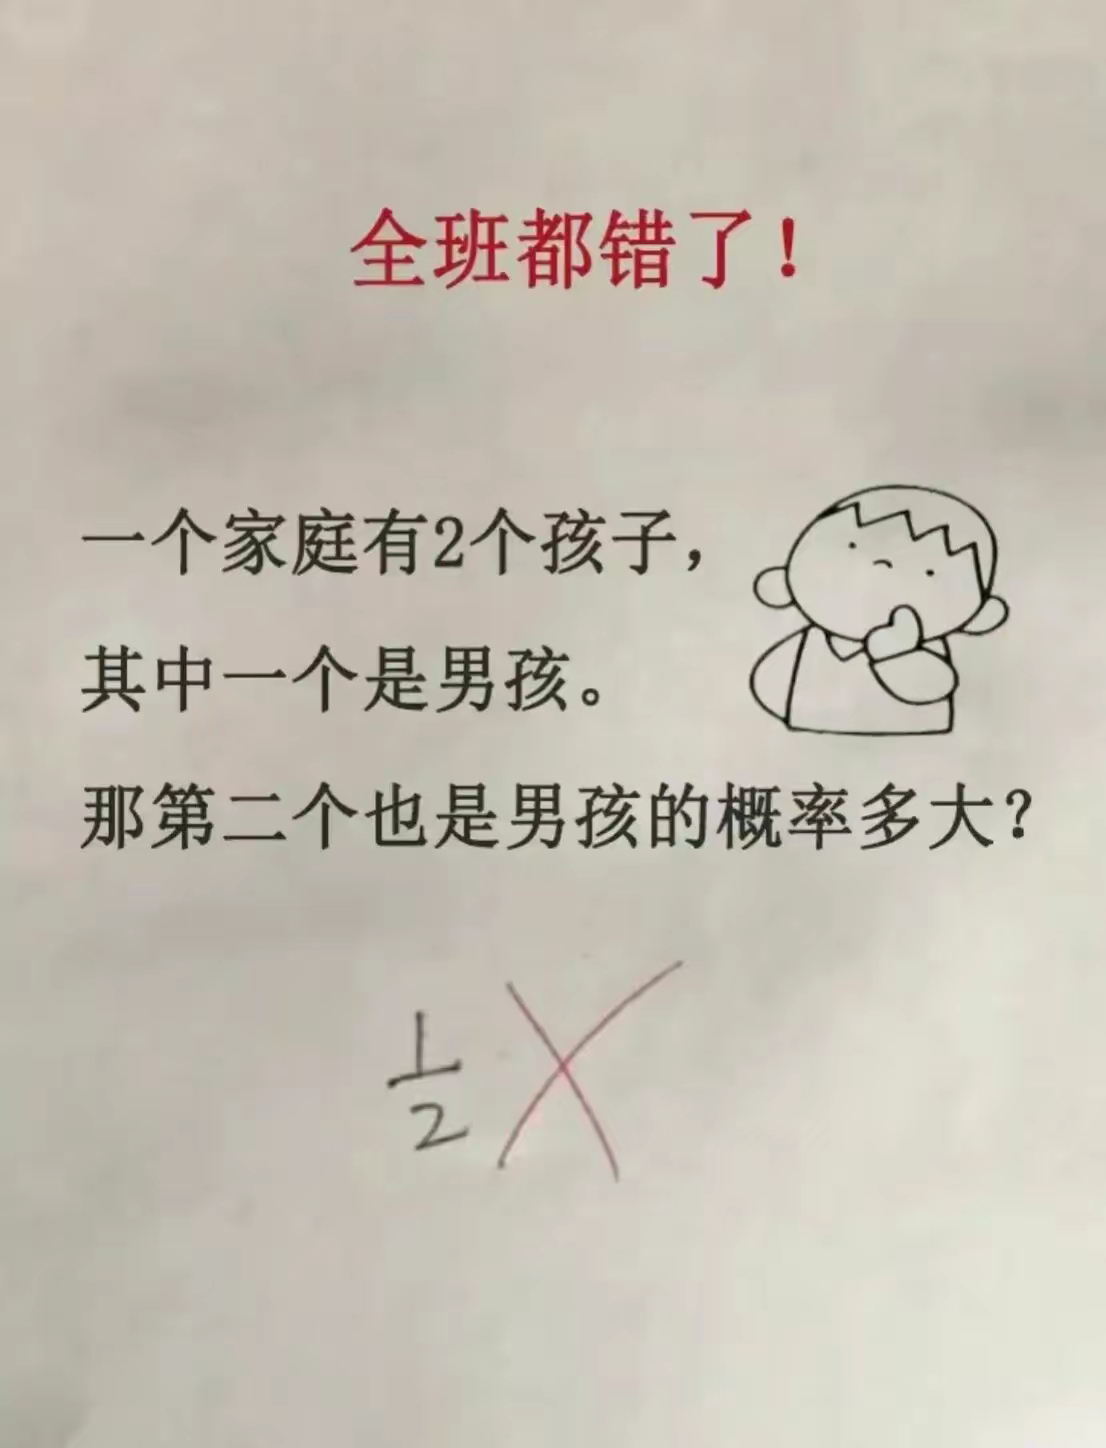 全班都错了！
一个家庭有2个孩子，
其中一个是男孩。
那第二个也是男孩的概率多大？
1/2